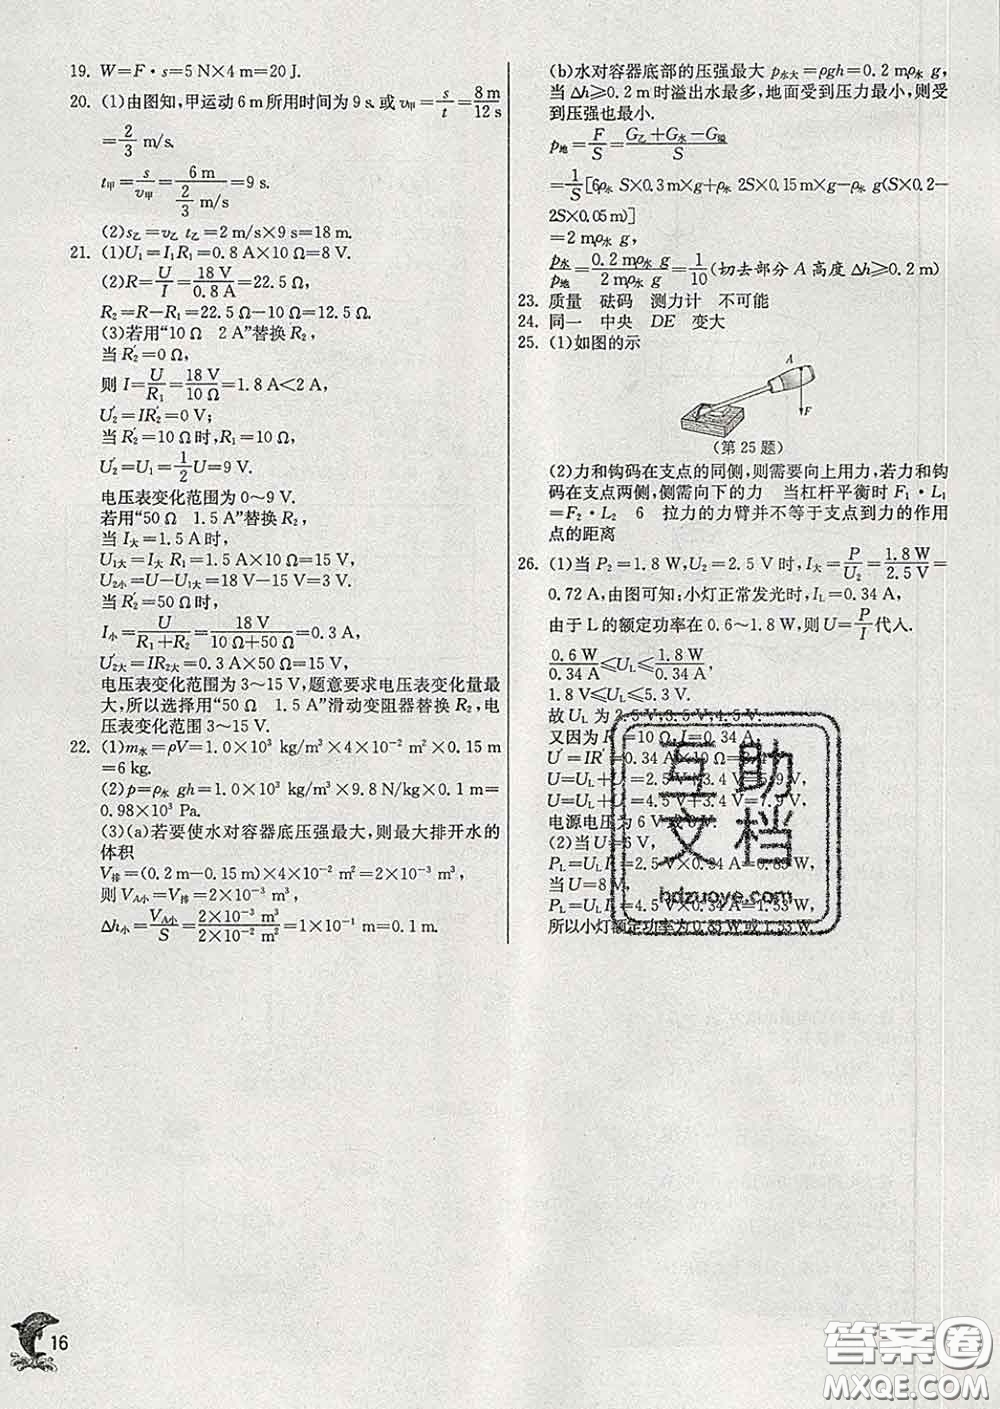 19. W=F·s=5 N×4 m=20 J.
20. (1)由图知,甲运动6 m所用时间为9 s. 或v甲=s/t=8 m/12 s
=2/3 m/s.
t甲=s/v甲=6 m/(2/3 m/s)=9 s.
(2)s乙=v乙 t乙=2 m/s×9 s=18 m.
21. (1)U₁=I₁R₁=0.8 A×10 Ω=8 V.
(2)R=U/I=18 V/0.8 A=22.5 Ω,
R₂=R−R₁=22.5 Ω−10 Ω=12.5 Ω.
(3)若用“10 Ω 2 A”替换R₂,
当R₂′=0 Ω,
则I=U/R₁=18 V/10 Ω=1.8 A<2 A,
U₂′=IR₂′=0 V;
当R₂′=10 Ω时,R₁=10 Ω,
U₂′=U₁=1/2U=9 V.
电压表变化范围为0~9 V.
若用“50 Ω 1.5 A”替换R₂,
当I大=1.5 A时,
U1大=I大 R₁=1.5 A×10 Ω=15 V,
U2小=U−U1大=18 V−15 V=3 V.
当R₂′=50 Ω时,
I小=U/(R₁+R₂)=18 V/(10 Ω+50 Ω)=0.3 A,
U′2大=IR2大=0.3 A×50 Ω=15 V,
电压表变化范围为3~15 V,题意要求电压表变化量最
大,所以选择用“50 Ω 1.5 A”滑动变阻器替换R₂,电
压表变化范围3~15 V.
22. (1)m水=ρV=1.0×10³ kg/m³×4×10⁻² m²×0.15 m
=6 kg.
(2)p=ρ水 gh=1.0×10³ kg/m³×9.8 N/kg×0.1 m=
0.98×10³ Pa.
(3)(a)若要使水对容器底压强最大,则最大排开水的
体积
V排=(0.2 m−0.15 m)×4×10⁻² m²=2×10⁻³ m³,
则VA小=V排=2×10⁻³ m³,
Δh小=VA小/S=2×10⁻³ m³/2×10⁻² m²=1×10⁻¹ m=0.1 m.
(b)水对容器底部的压强最大p水大=ρgh=0.2 mρ水 g,
当Δh≥0.2 m时溢出水最多,地面受到压力最小,则受
到压强也最小.
p地=F/S=(G乙+G水−G溢)/S
=1/S[6ρ水 S×0.3 m×g+ρ水 2S×0.15 m×g−ρ水 g(S×0.2−
2S×0.05 m)]
=2 mρ水 g,
p水/p地=0.2 mρ水 g/2 mρ水 g=1/10(切去部分A高度Δh≥0.2 m)
23. 质量 砝码 测力计 不可能
24. 同一 中央 DE 变大
25. (1)如图的示
A
F
(第25题)
(2)力和钩码在支点的同侧,则需要向上用力,若力和钩
码在支点两侧,侧需向下的力 当杠杆平衡时F₁·L₁
=F₂·L₂ 6 拉力的力臂并不等于支点到力的作用
点的距离
26. (1)当P₂=1.8 W,U₂=2.5 V时,I大=P/U₂=1.8 W/2.5 V=
0.72 A,由图可知:小灯正常发光时,IL=0.34 A,
由于L的额定功率在0.6~1.8 W,则U=P/I代入.
0.6 W/0.34 A≤UL≤1.8 W/0.34 A,
1.8 V≤UL≤5.3 V.
故UL为2.5 V,3.5 V,4.5 V.
又因为R=10 Ω,I=0.34 A.
U′=IR′=0.34 A×10 Ω=3.4 V,
U=UL+U=2.5 V+3.4 V=5.9 V,
U=UL+U=4.5 V+3.4 V=7.9 V,
电源电压为6 V或8 V.
(2)当U=6 V,
PL=ULI=2.5 V×0.34 A=0.85 W,
当U=8 V,
PL=ULI=4.5 V×0.34 A=1.53 W,
所以小灯额定功率为0.85 W或1.53 W.
互助
文档
hdzuoye.com
16
答案圈
MXQE.COM